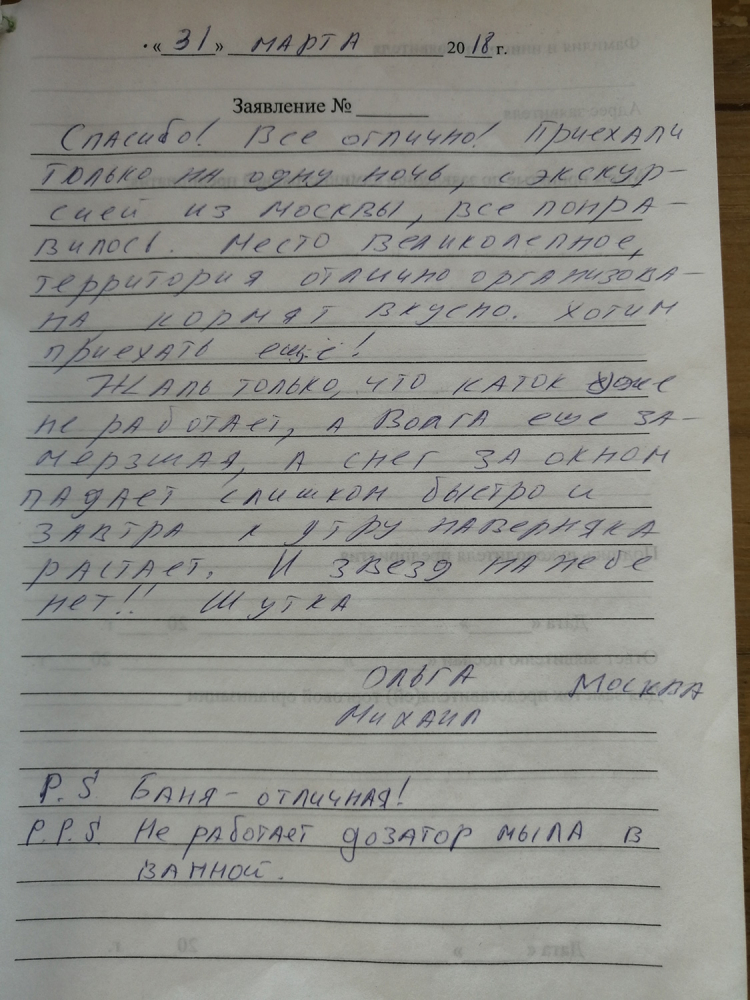 «31» МАРТА 2018 г.
Заявление №
Спасибо! Все отлично! Приехали
только на одну ночь, с экскур-
сией из Москвы, все понра-
вилось. Место великолепное,
территория отлично организова-
на, кормят вкусно. Хотим
приехать ещё!
Жаль только, что каток уже
не работает, а Волга еще за-
мерзшая, а снег за окном
падает слишком быстро и
завтра к утру наверняка
растает. И звезд на небе
нет!! Шутка
Ольга Москва
Михаил
P.S. Баня - отличная!
P.P.S. Не работает дозатор мыла в
ванной.